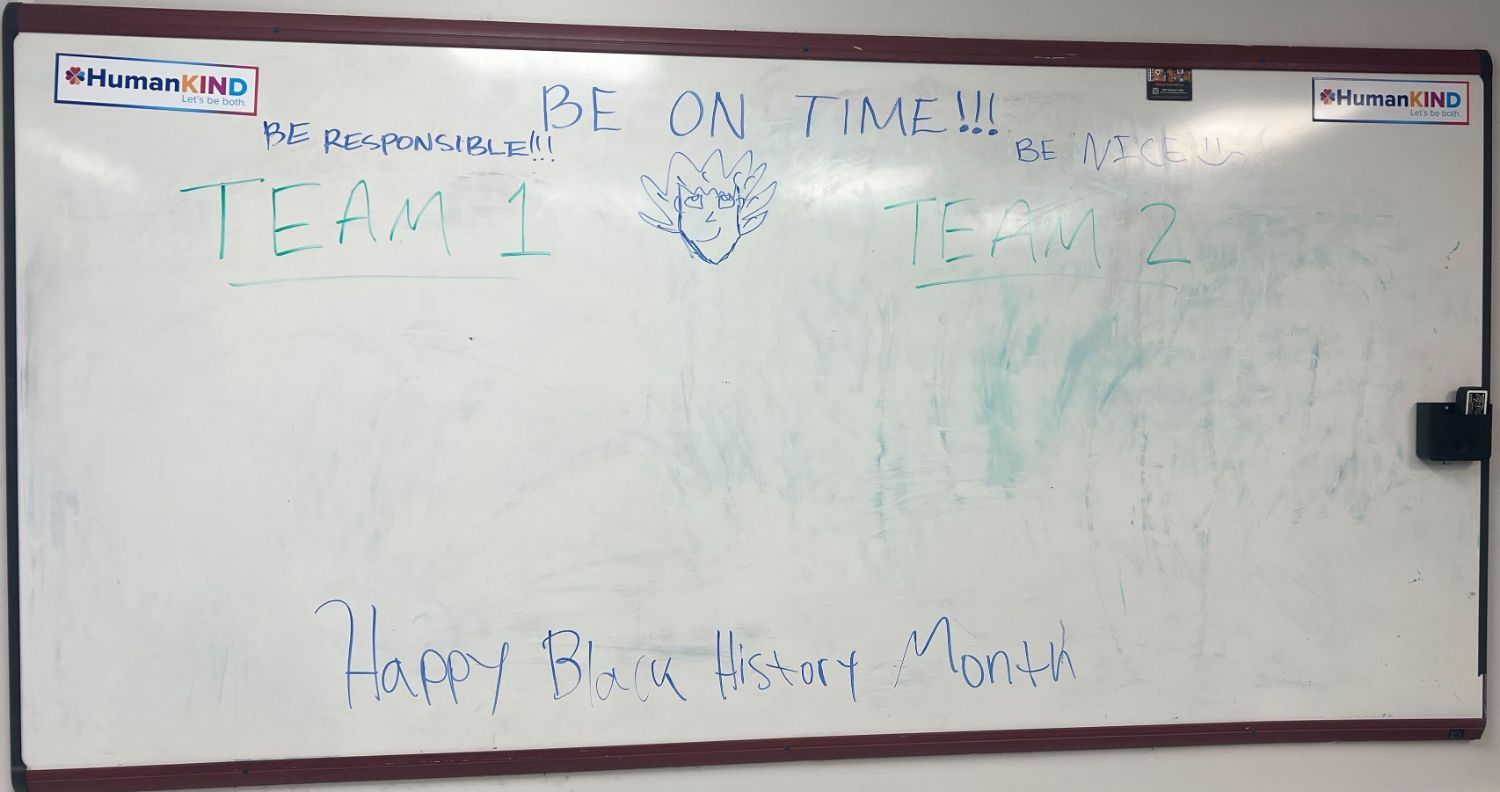 HumanKIND
Let's be both.
HumanKIND
Let's be both.
BE ON TIME!!!
BE RESPONSIBLE!!!
BE NICE
TEAM 1
TEAM 2
Happy Black History Month